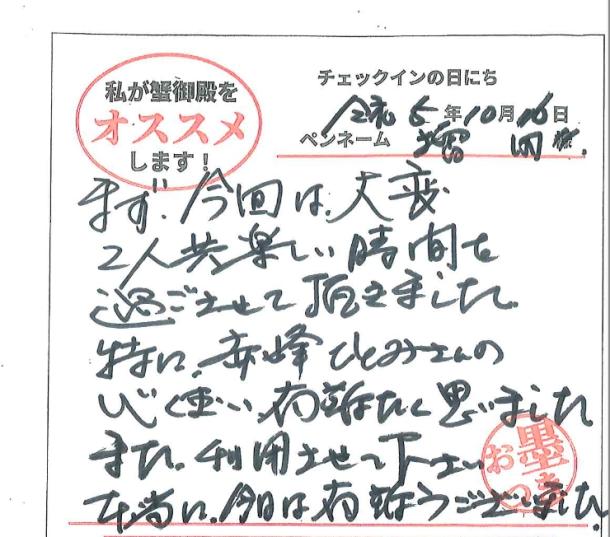 私が蟹御殿を
オススメ
します!
チェックインの日にち
令和5年10月16日
ペンネーム 増田様
まず、今回は、大変
2人共楽しい時間を
過ごさせて頂きました。
特に、赤峰ひとみさんの
心使い、有難たく思いました
また、利用させて下さい
本当に、今日は有難うございました。
お墨
つき